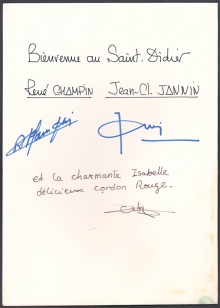 Bienvenue au Saint. Didier
René CHAMPIN Jean-Cl. JANNIN
et la charmante Isabelle
délicieux cordon Rouge.